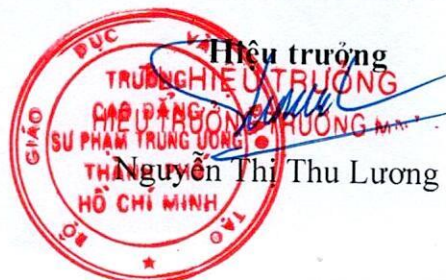 Hiệu trưởng
BỘ GIÁO DỤC VÀ ĐÀO TẠO
TRƯỜNG
CAO ĐẲNG
SƯ PHẠM TRUNG ƯƠNG
THÀNH PHỐ
HỒ CHÍ MINH
HIỆU TRƯỞNG
Nguyễn Thị Thu Lương